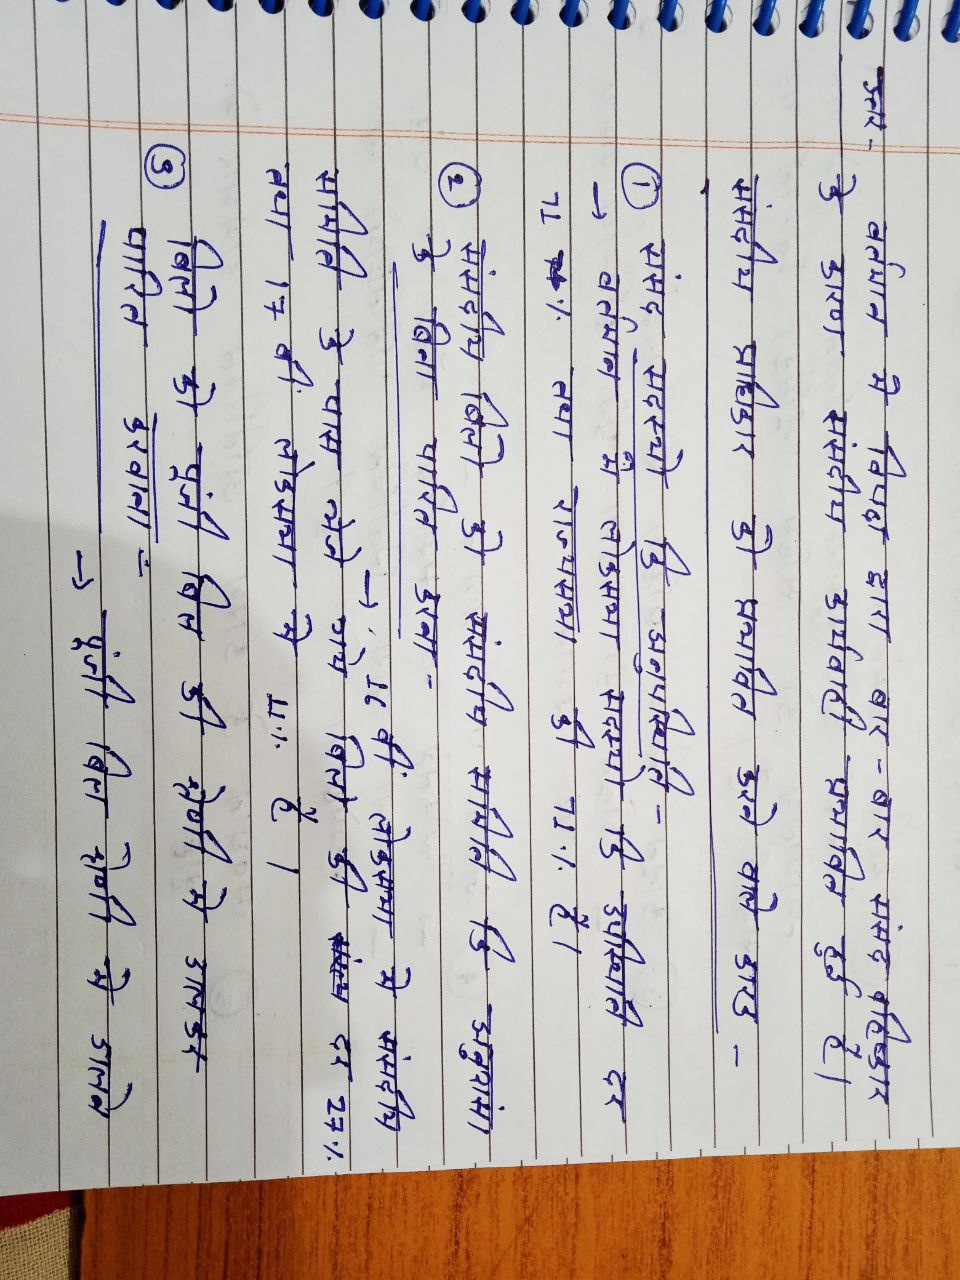 उत्तर- वर्तमान में विपक्ष द्वारा बार-बार संसद बहिष्कार
के कारण संसदीय कार्यवाही प्रभावित हुई है।
संसदीय प्राधिकार को प्रभावित करने वाले कारक -
① संसद सदस्यों कि अनुपस्थिति -
→ वर्तमान में लोकसभा सदस्यों कि उपस्थिति दर
71 % तथा राज्यसभा की 71% है।
② संसदीय बिलो को संसदीय समिति कि अनुशंसा
के बिना पारित करना -
→ 16 वीं लोकसभा मे संसदीय
समिति के पास भेजे गये बिलो की दर 27%
तथा 17 वीं लोकसभा मे 11% है।
③ बिलो को पुंजी बिल की श्रेणी मे डालकर
पारित करवाना :-
→ पुंजी बिल श्रेणी मे डालने